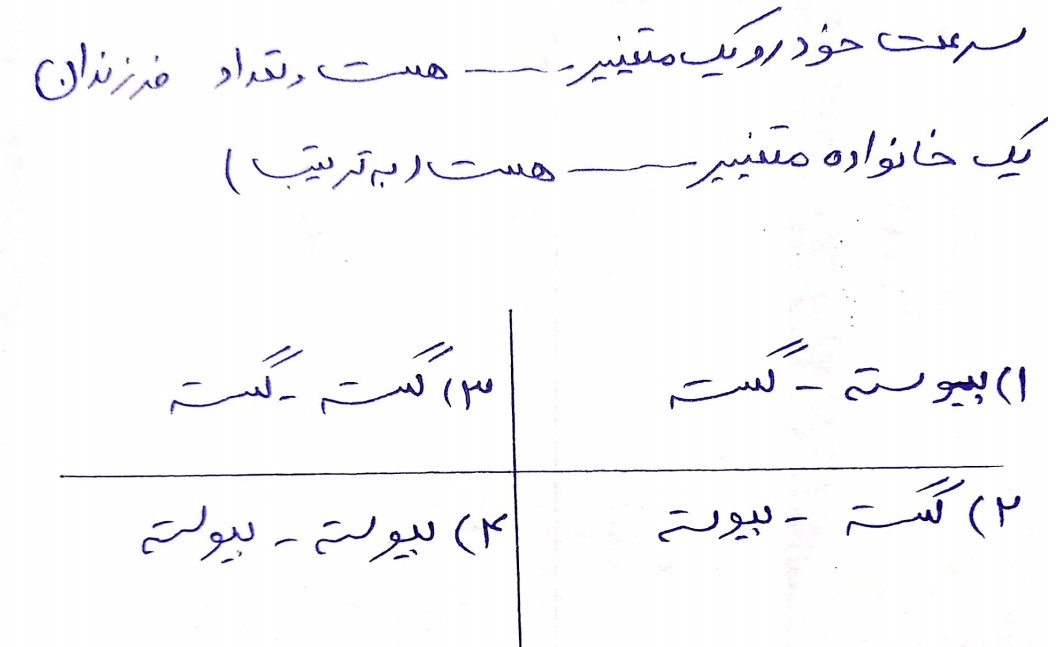 سرعت خودرو یک متغییر ــــ هست و تعداد فرزندان
یک خانواده متغییر ــــ هست (به ترتیب)
۱) پیوسته - گسسته
۳) گسسته - گسسته
۲) گسسته - پیوسته
۴) پیوسته - پیوسته